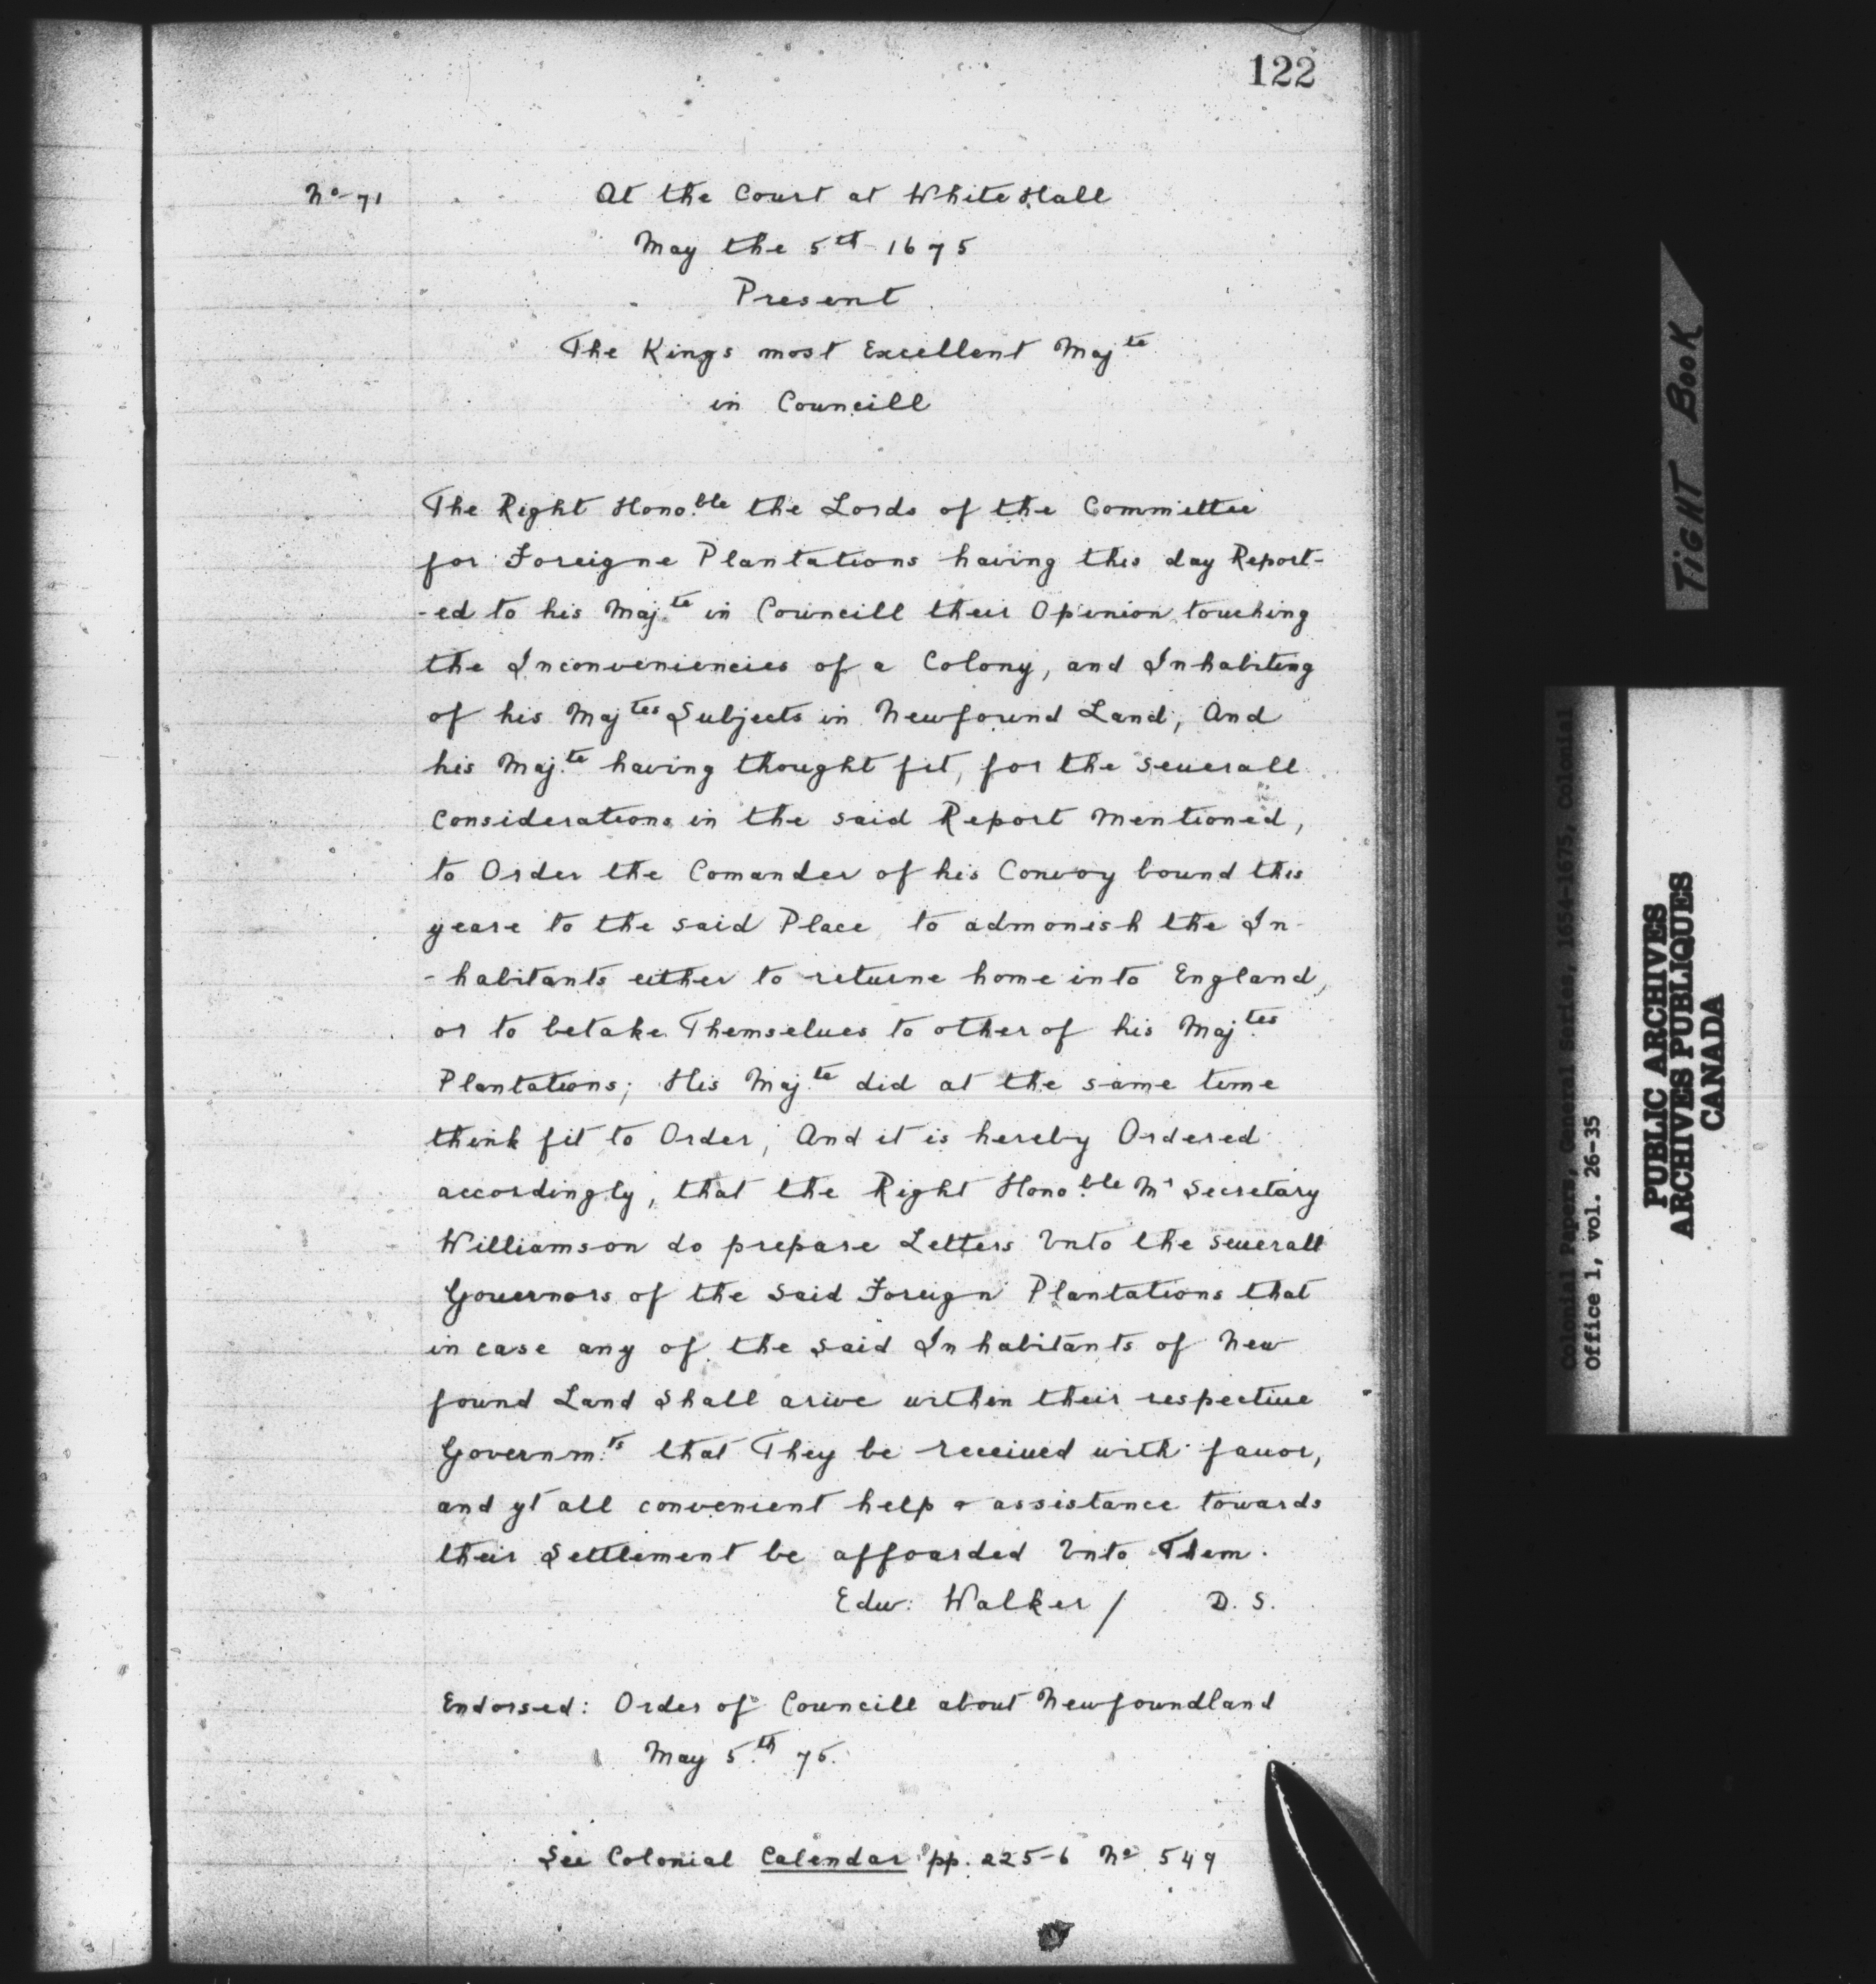 122
No 71
At the Court at White Hall
May the 5th 1675
Present
The Kings most Excellent Majte
in Councill
The Right Hono.ble the Lords of the Committee
for Foreigne Plantations having this day Report-
-ed to his Maj.te in Councill their Opinion touching
the Inconveniencies of a Colony, and Inhabiting
of his Majtes Subjects in Newfound Land, And
his Maj.te having thought fit, for the seuerall
considerations in the said Report mentioned,
to Order the Comander of his Convoy bound this
yeare to the said Place to admonish the In-
-habitants either to returne home into England,
or to betake Themselues to other of his Maj.tes
Plantations; His Maj.te did at the same time
think fit to Order, And it is hereby Ordered
accordingly, that the Right Hono.ble Mr Secretary
Williamson do prepare Letters Vnto the seuerall
Gouernors of the said Foreign Plantations that
in case any of the said Inhabitants of New
found Land shall ariue within their respectiue
Governm.ts that They be receiued with fauor,
and yt all convenient help & assistance towards
their Settlement be affoarded Vnto Them.
Edw: Walker / D. S.
Endorsed: Order of Councill about Newfoundland
May 5.th 75.
See Colonial Calendar pp. 225-6 No 549
TIGHT BOOK
Colonial Papers, General Series, 1654-1675, Colonial
Office 1, vol. 26-35
PUBLIC ARCHIVES
ARCHIVES PUBLIQUES
CANADA